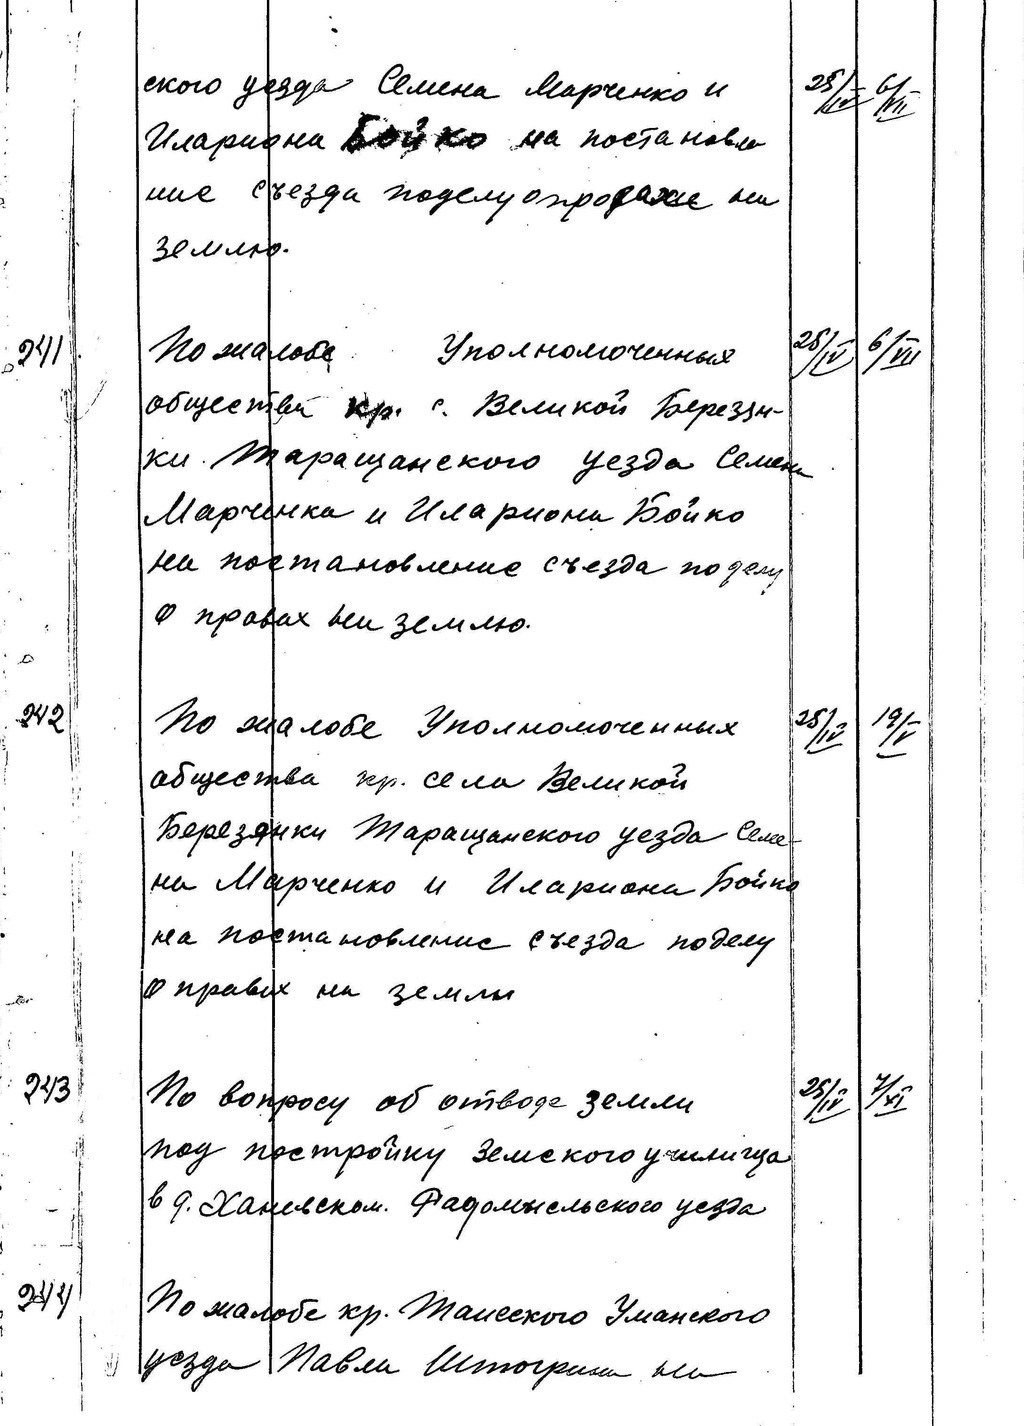 ского уезда Семена Марченко и 25/IV 6/VII
Илариона Бойко на постановле
ние съезда по делу о продаже на
землю.
241 По жалобе Уполномоченных 25/IV 6/VII
общества кр. с. Великой Березян-
ки Таращанского уезда Семена
Марченка и Илариона Бойко
на постановление съезда по делу
о правах на землю.
242 По жалобе Уполномоченных 25/IV 19/V
общества кр. села Великой
Березянки Таращанского уезда Семе-
на Марченко и Илариона Бойко
на постановление съезда по делу
о правах на земли
243 По вопросу об отводе земли 25/IV 7/XI
под постройку Земского училища
в д. Ханевском. Радомысльского уезда
244 По жалобе кр. Уманского
уезда Павла Штогрина на